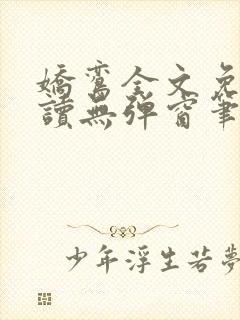 嬌鸞全文免
讀無彈窗筆
少年浮生若夢